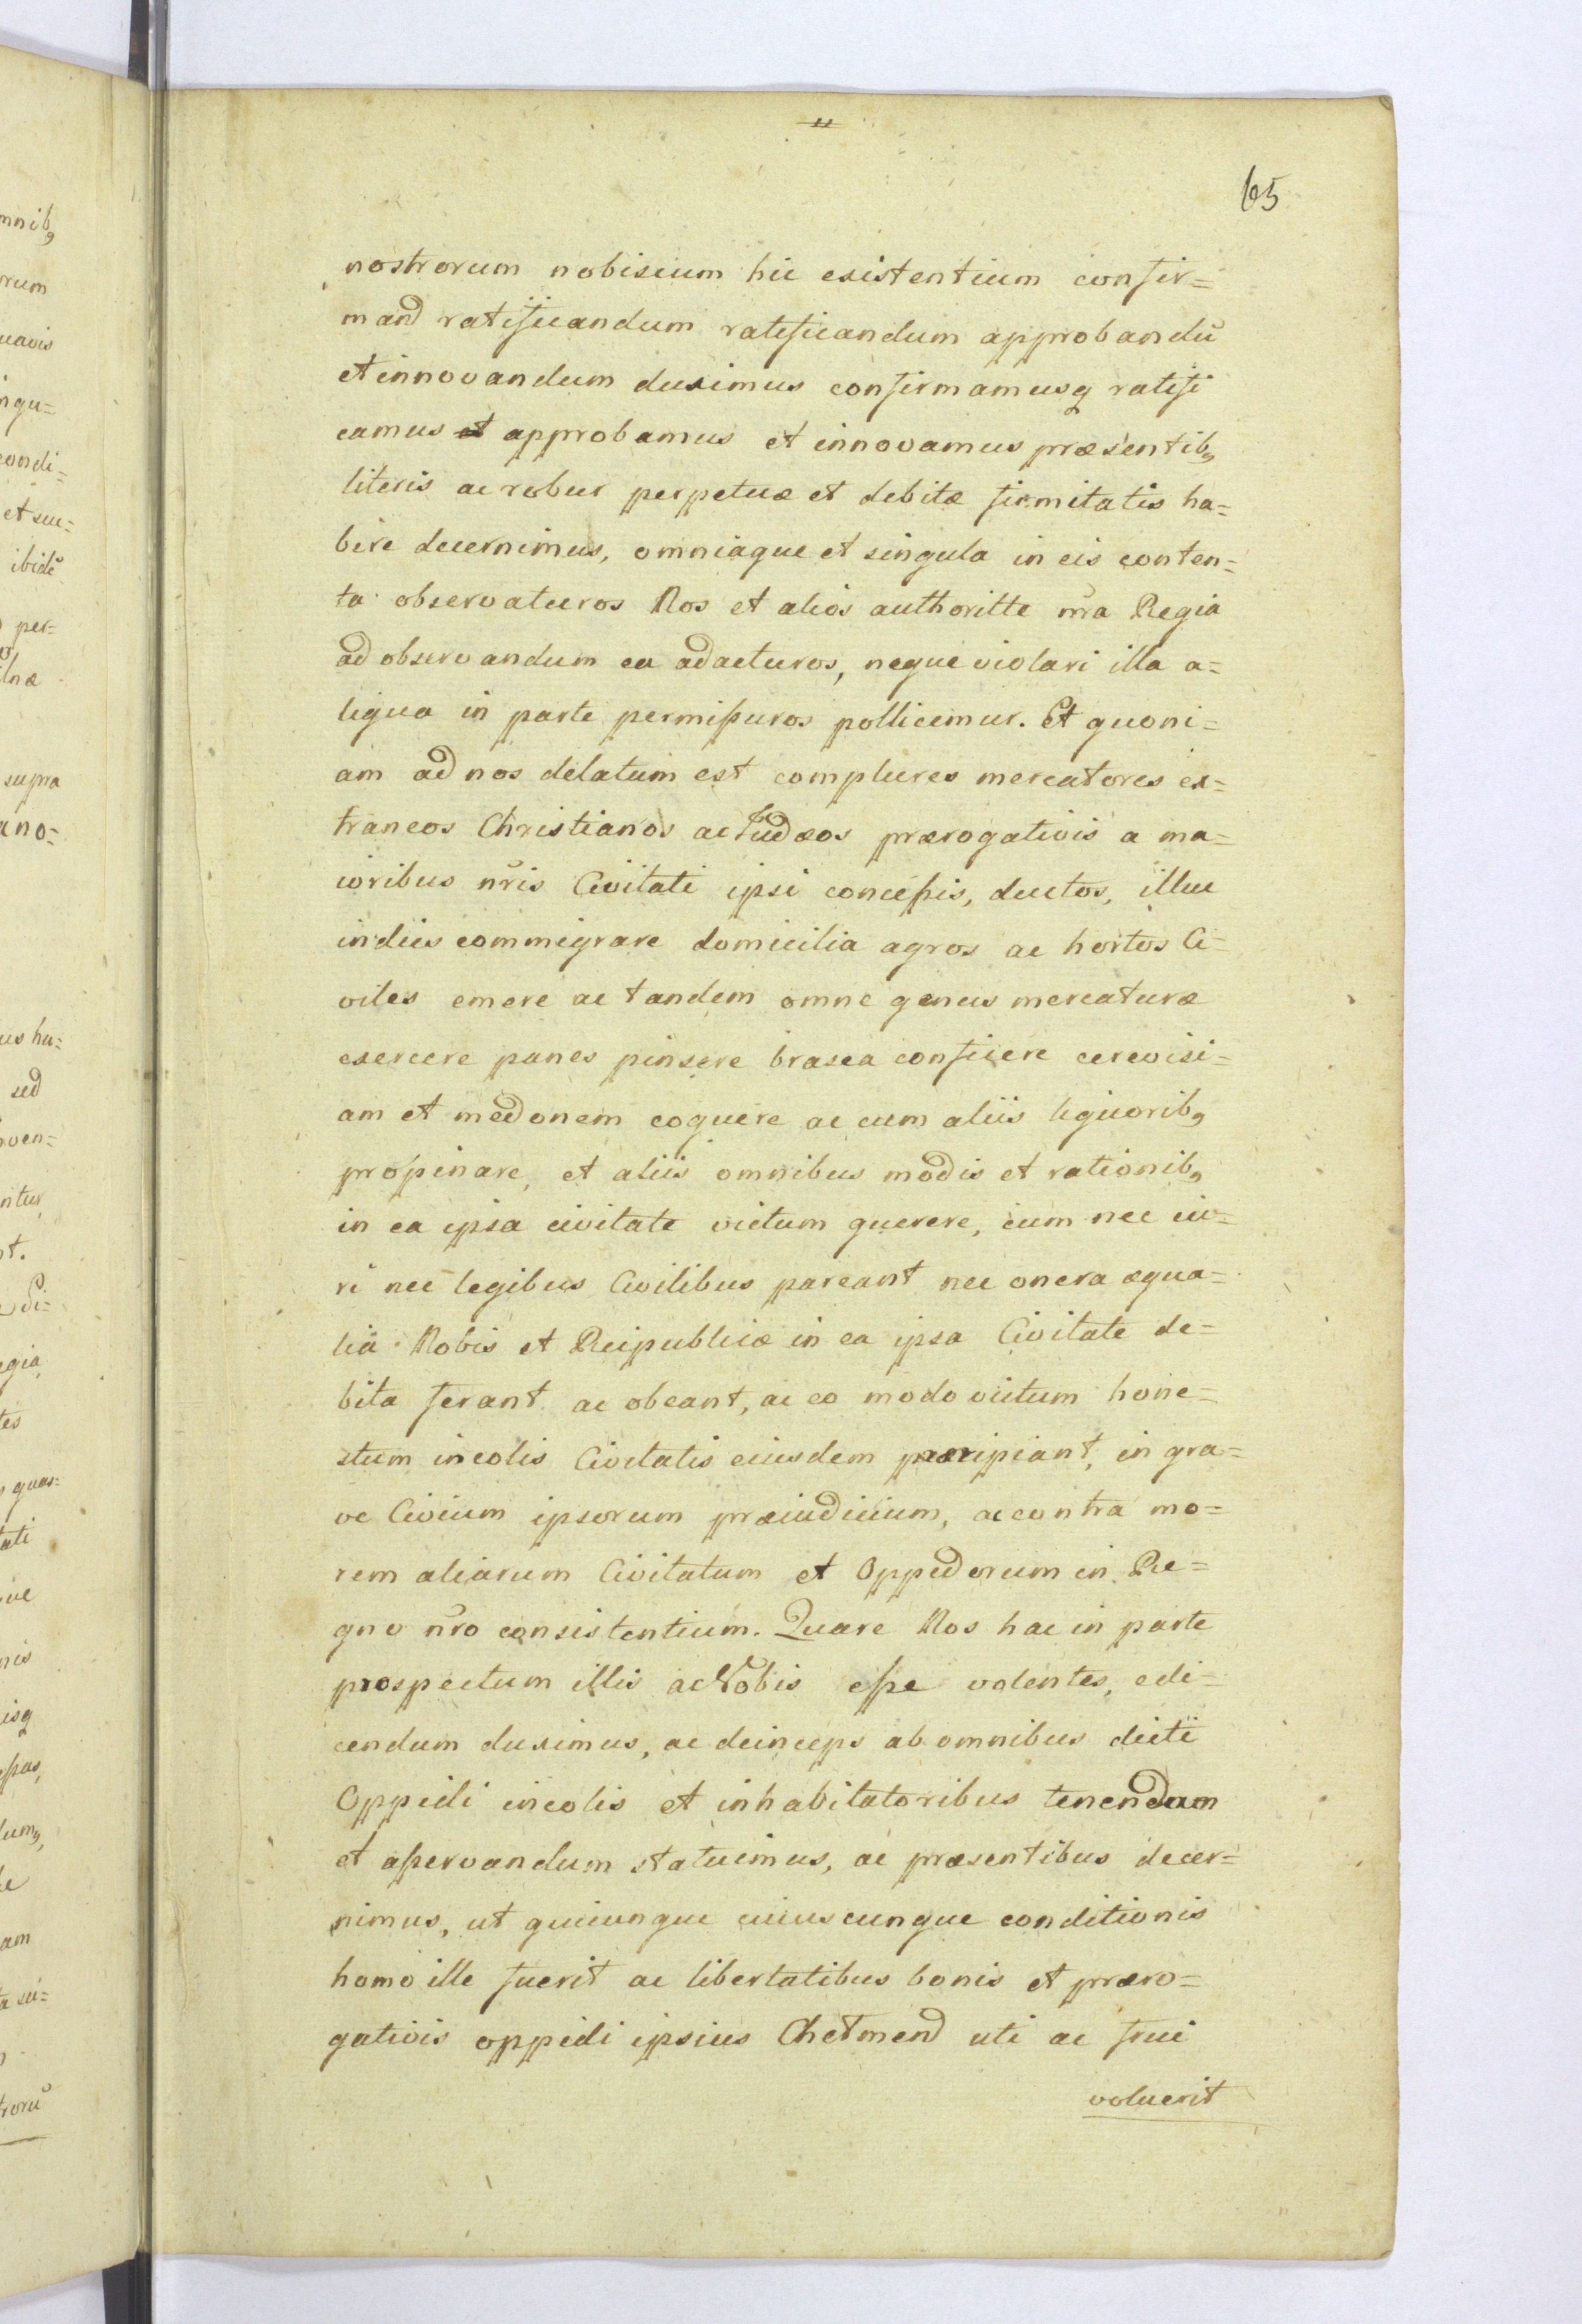 65
nostrorum nobiscum hic existentium confir=
mand ratificandum ratificandum approbandũ
et innovandum duximus confirmamusq ratifi
camus et approbamus et innovamus præsentib9
literis ac robur perpetuæ et debitæ firmitatis ha=
bere decernimus, omniaque et singula in eis conten=
ta observaturos Nos et alios authoritte nra Regia
ad observandum ea adacturos, neque violari illa a=
liqua in parte permissuros pollicemur. Et quoni=
am ad nos delatum est complures mercatores ex=
traneos Christianos ac Iudæos prærogativis a ma=
ioribus nris Civitati ipsi concessis, ductos, illuc
indies commigrare domicilia agros ac hortos Ci=
viles emere ac tandem omne genus mercaturæ
exercere panes pinsere brasea conficere cerevisi=
am et medonem coquere ac cum aliis liquorib9
propinare, et aliis omnibus modis et rationib9
in ea ipsa civitate victum querere, cum nec iu=
ri nec legibus Civilibus pareant nec onera æqua=
lia Nobis et Reipublicæ in ea ipsa Civitate de=
bita ferant ac obeant, ac eo modo victum hone=
stum incolis Civitatis eiusdem præripiant, in gra=
ve Civium ipsorum præiudicium, ac contra mo=
rem aliarum Civitatum et Oppidorum in Re=
gno nro consistentium. Quare Nos hac in parte
prospectum illis ac Nobis esse volentes, edi=
cendum duximus, ac deinceps ab omnibus dicti
Oppidi incolis et inhabitatoribus tenendum
et asservandum statuimus, ac præsentibus decer=
nimus, ut quicunque cuiuscunque conditionis
homo ille fuerit ac libertatibus bonis et præro=
gativis oppidi ipsius Chetmend uti ac frui
voluerit